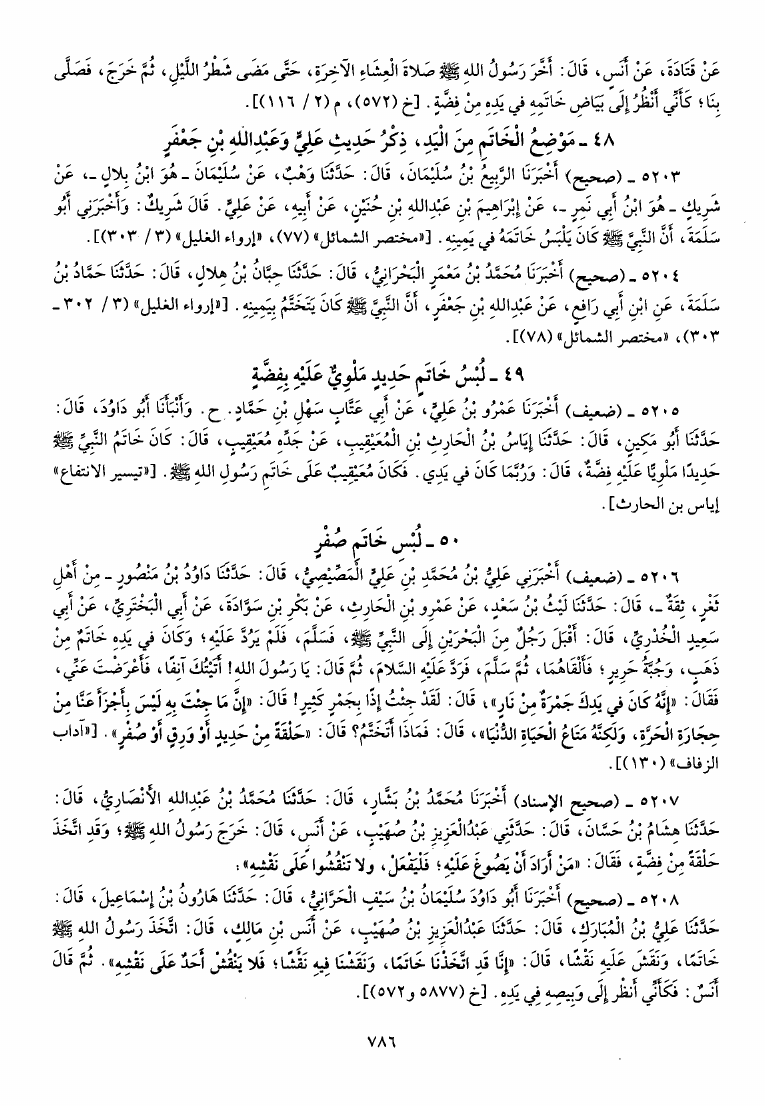 عَنْ قَتَادَةَ، عَنْ أَنَسٍ، قَالَ: أَخَّرَ رَسُولُ اللهِ ﷺ صَلاةَ الْعِشَاءِ الآخِرَةِ، حَتَّى مَضَى شَطْرُ اللَّيْلِ، ثُمَّ خَرَجَ، فَصَلَّى
بِنَا؛ كَأَنِّي أَنْظُرُ إِلَى بَيَاضِ خَاتَمِهِ فِي يَدِهِ مِنْ فِضَّةٍ. [خ (٥٧٢)، م (٢/ ١١٦)].
٤٨ ـ مَوْضِعُ الْخَاتَمِ مِنَ الْيَدِ، ذِكْرُ حَدِيثِ عَلِيٍّ وَعَبْدِاللهِ بْنِ جَعْفَرٍ
٥٢٠٣ ـ (صحيح) أَخْبَرَنَا الرَّبِيعُ بْنُ سُلَيْمَانَ، قَالَ: حَدَّثَنَا وَهْبٌ، عَنْ سُلَيْمَانَ ـ هُوَ ابْنُ بِلالٍ ـ، عَنْ
شَرِيكٍ ـ هُوَ ابْنُ أَبِي نَمِرٍ ـ، عَنْ إِبْرَاهِيمَ بْنِ عَبْدِاللهِ بْنِ حُنَيْنٍ، عَنْ أَبِيهِ، عَنْ عَلِيٍّ. قَالَ شَرِيكٌ: وَأَخْبَرَنِي أَبُو
سَلَمَةَ، أَنَّ النَّبِيَّ ﷺ كَانَ يَلْبَسُ خَاتَمَهُ فِي يَمِينِهِ. [«مختصر الشمائل» (٧٧)، «إرواء الغليل» (٣/ ٣٠٣)].
٥٢٠٤ ـ (صحيح) أَخْبَرَنَا مُحَمَّدُ بْنُ مَعْمَرٍ الْبَحْرَانِيُّ، قَالَ: حَدَّثَنَا حِبَّانُ بْنُ هِلالٍ، قَالَ: حَدَّثَنَا حَمَّادُ بْنُ
سَلَمَةَ، عَنِ ابْنِ أَبِي رَافِعٍ، عَنْ عَبْدِاللهِ بْنِ جَعْفَرٍ، أَنَّ النَّبِيَّ ﷺ كَانَ يَتَخَتَّمُ بِيَمِينِهِ. [«إرواء الغليل» (٣/ ٣٠٢ ـ
٣٠٣)، «مختصر الشمائل» (٧٨)].
٤٩ ـ لُبْسُ خَاتَمِ حَدِيدٍ مَلْوِيٍّ عَلَيْهِ بِفِضَّةٍ
٥٢٠٥ ـ (ضعيف) أَخْبَرَنَا عَمْرُو بْنُ عَلِيٍّ، عَنْ أَبِي عَتَّابٍ سَهْلِ بْنِ حَمَّادٍ. ح. وَأَنْبَأَنَا أَبُو دَاوُدَ، قَالَ:
حَدَّثَنَا أَبُو مَكِينٍ، قَالَ: حَدَّثَنَا إِيَاسُ بْنُ الْحَارِثِ بْنِ الْمُعَيْقِيبِ، عَنْ جَدِّهِ مُعَيْقِيبٍ، قَالَ: كَانَ خَاتَمُ النَّبِيِّ ﷺ
حَدِيدًا مَلْوِيًّا عَلَيْهِ فِضَّةٌ، قَالَ: وَرُبَّمَا كَانَ فِي يَدِي. فَكَانَ مُعَيْقِيبٌ عَلَى خَاتَمِ رَسُولِ اللهِ ﷺ. [«تيسير الانتفاع»
إياس بن الحارث].
٥٠ ـ لُبْسِ خَاتَمِ صُفْرٍ
٥٢٠٦ ـ (ضعيف) أَخْبَرَنِي عَلِيُّ بْنُ مُحَمَّدِ بْنِ عَلِيٍّ الْمِصِّيصِيُّ، قَالَ: حَدَّثَنَا دَاوُدُ بْنُ مَنْصُورٍ ـ مِنْ أَهْلِ
ثَغْرٍ، ثِقَةٌ ـ، قَالَ: حَدَّثَنَا لَيْثُ بْنُ سَعْدٍ، عَنْ عَمْرِو بْنِ الْحَارِثِ، عَنْ بَكْرِ بْنِ سَوَّادَةَ، عَنْ أَبِي الْبَخْتَرِيِّ، عَنْ أَبِي
سَعِيدٍ الْخُدْرِيِّ، قَالَ: أَقْبَلَ رَجُلٌ مِنَ الْبَحْرَيْنِ إِلَى النَّبِيِّ ﷺ، فَسَلَّمَ، فَلَمْ يَرُدَّ عَلَيْهِ؛ وَكَانَ فِي يَدِهِ خَاتَمٌ مِنْ
ذَهَبٍ، وَجُبَّةُ حَرِيرٍ؛ فَأَلْقَاهُمَا، ثُمَّ سَلَّمَ، فَرَدَّ عَلَيْهِ السَّلامَ، ثُمَّ قَالَ: يَا رَسُولَ اللهِ! أَتَيْتُكَ آنِفًا، فَأَعْرَضْتَ عَنِّي،
فَقَالَ: «إِنَّهُ كَانَ فِي يَدِكَ جَمْرَةٌ مِنْ نَارٍ»، قَالَ: لَقَدْ جِئْتُ إِذًا بِجَمْرٍ كَثِيرٍ! قَالَ: «إِنَّ مَا جِئْتَ بِهِ لَيْسَ بِأَجْزَأَ عَنَّا مِنْ
حِجَارَةِ الْحَرَّةِ، وَلَكِنَّهُ مَتَاعُ الْحَيَاةِ الدُّنْيَا»، قَالَ: فَمَاذَا أَتَخَتَّمُ؟ قَالَ: «حَلْقَةً مِنْ حَدِيدٍ أَوْ وَرِقٍ أَوْ صُفْرٍ». [«آداب
الزفاف» (١٣٠)].
٥٢٠٧ ـ (صحيح الإسناد) أَخْبَرَنَا مُحَمَّدُ بْنُ بَشَّارٍ، قَالَ: حَدَّثَنَا مُحَمَّدُ بْنُ عَبْدِاللهِ الأَنْصَارِيُّ، قَالَ:
حَدَّثَنَا هِشَامُ بْنُ حَسَّانَ، قَالَ: حَدَّثَنِي عَبْدُالْعَزِيزِ بْنُ صُهَيْبٍ، عَنْ أَنَسٍ، قَالَ: خَرَجَ رَسُولُ اللهِ ﷺ؛ وَقَدِ اتَّخَذَ
حَلْقَةً مِنْ فِضَّةٍ، فَقَالَ: «مَنْ أَرَادَ أَنْ يَصُوغَ عَلَيْهِ؛ فَلْيَفْعَلْ، ولا تَنْقُشُوا عَلَى نَقْشِهِ»:
٥٢٠٨ ـ (صحيح) أَخْبَرَنَا أَبُو دَاوُدَ سُلَيْمَانُ بْنُ سَيْفٍ الْحَرَّانِيُّ، قَالَ: حَدَّثَنَا هَارُونُ بْنُ إِسْمَاعِيلَ، قَالَ:
حَدَّثَنَا عَلِيُّ بْنُ الْمُبَارَكِ، قَالَ: حَدَّثَنَا عَبْدُالْعَزِيزِ بْنُ صُهَيْبٍ، عَنْ أَنَسِ بْنِ مَالِكٍ، قَالَ: اتَّخَذَ رَسُولُ اللهِ ﷺ
خَاتَمًا، وَنَقَشَ عَلَيْهِ نَقْشًا، قَالَ: «إِنَّا قَدِ اتَّخَذْنَا خَاتَمًا، وَنَقَشْنَا فِيهِ نَقْشًا؛ فَلا يَنْقُشْ أَحَدٌ عَلَى نَقْشِهِ». ثُمَّ قَالَ
أَنَسٌ: فَكَأَنِّي أَنْظُر إِلَى وَبِيصِهِ فِي يَدِهِ. [خ (٥٨٧٧ و٥٧٢)].
٧٨٦